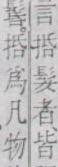 言括髮者皆
髻。括爲凡物